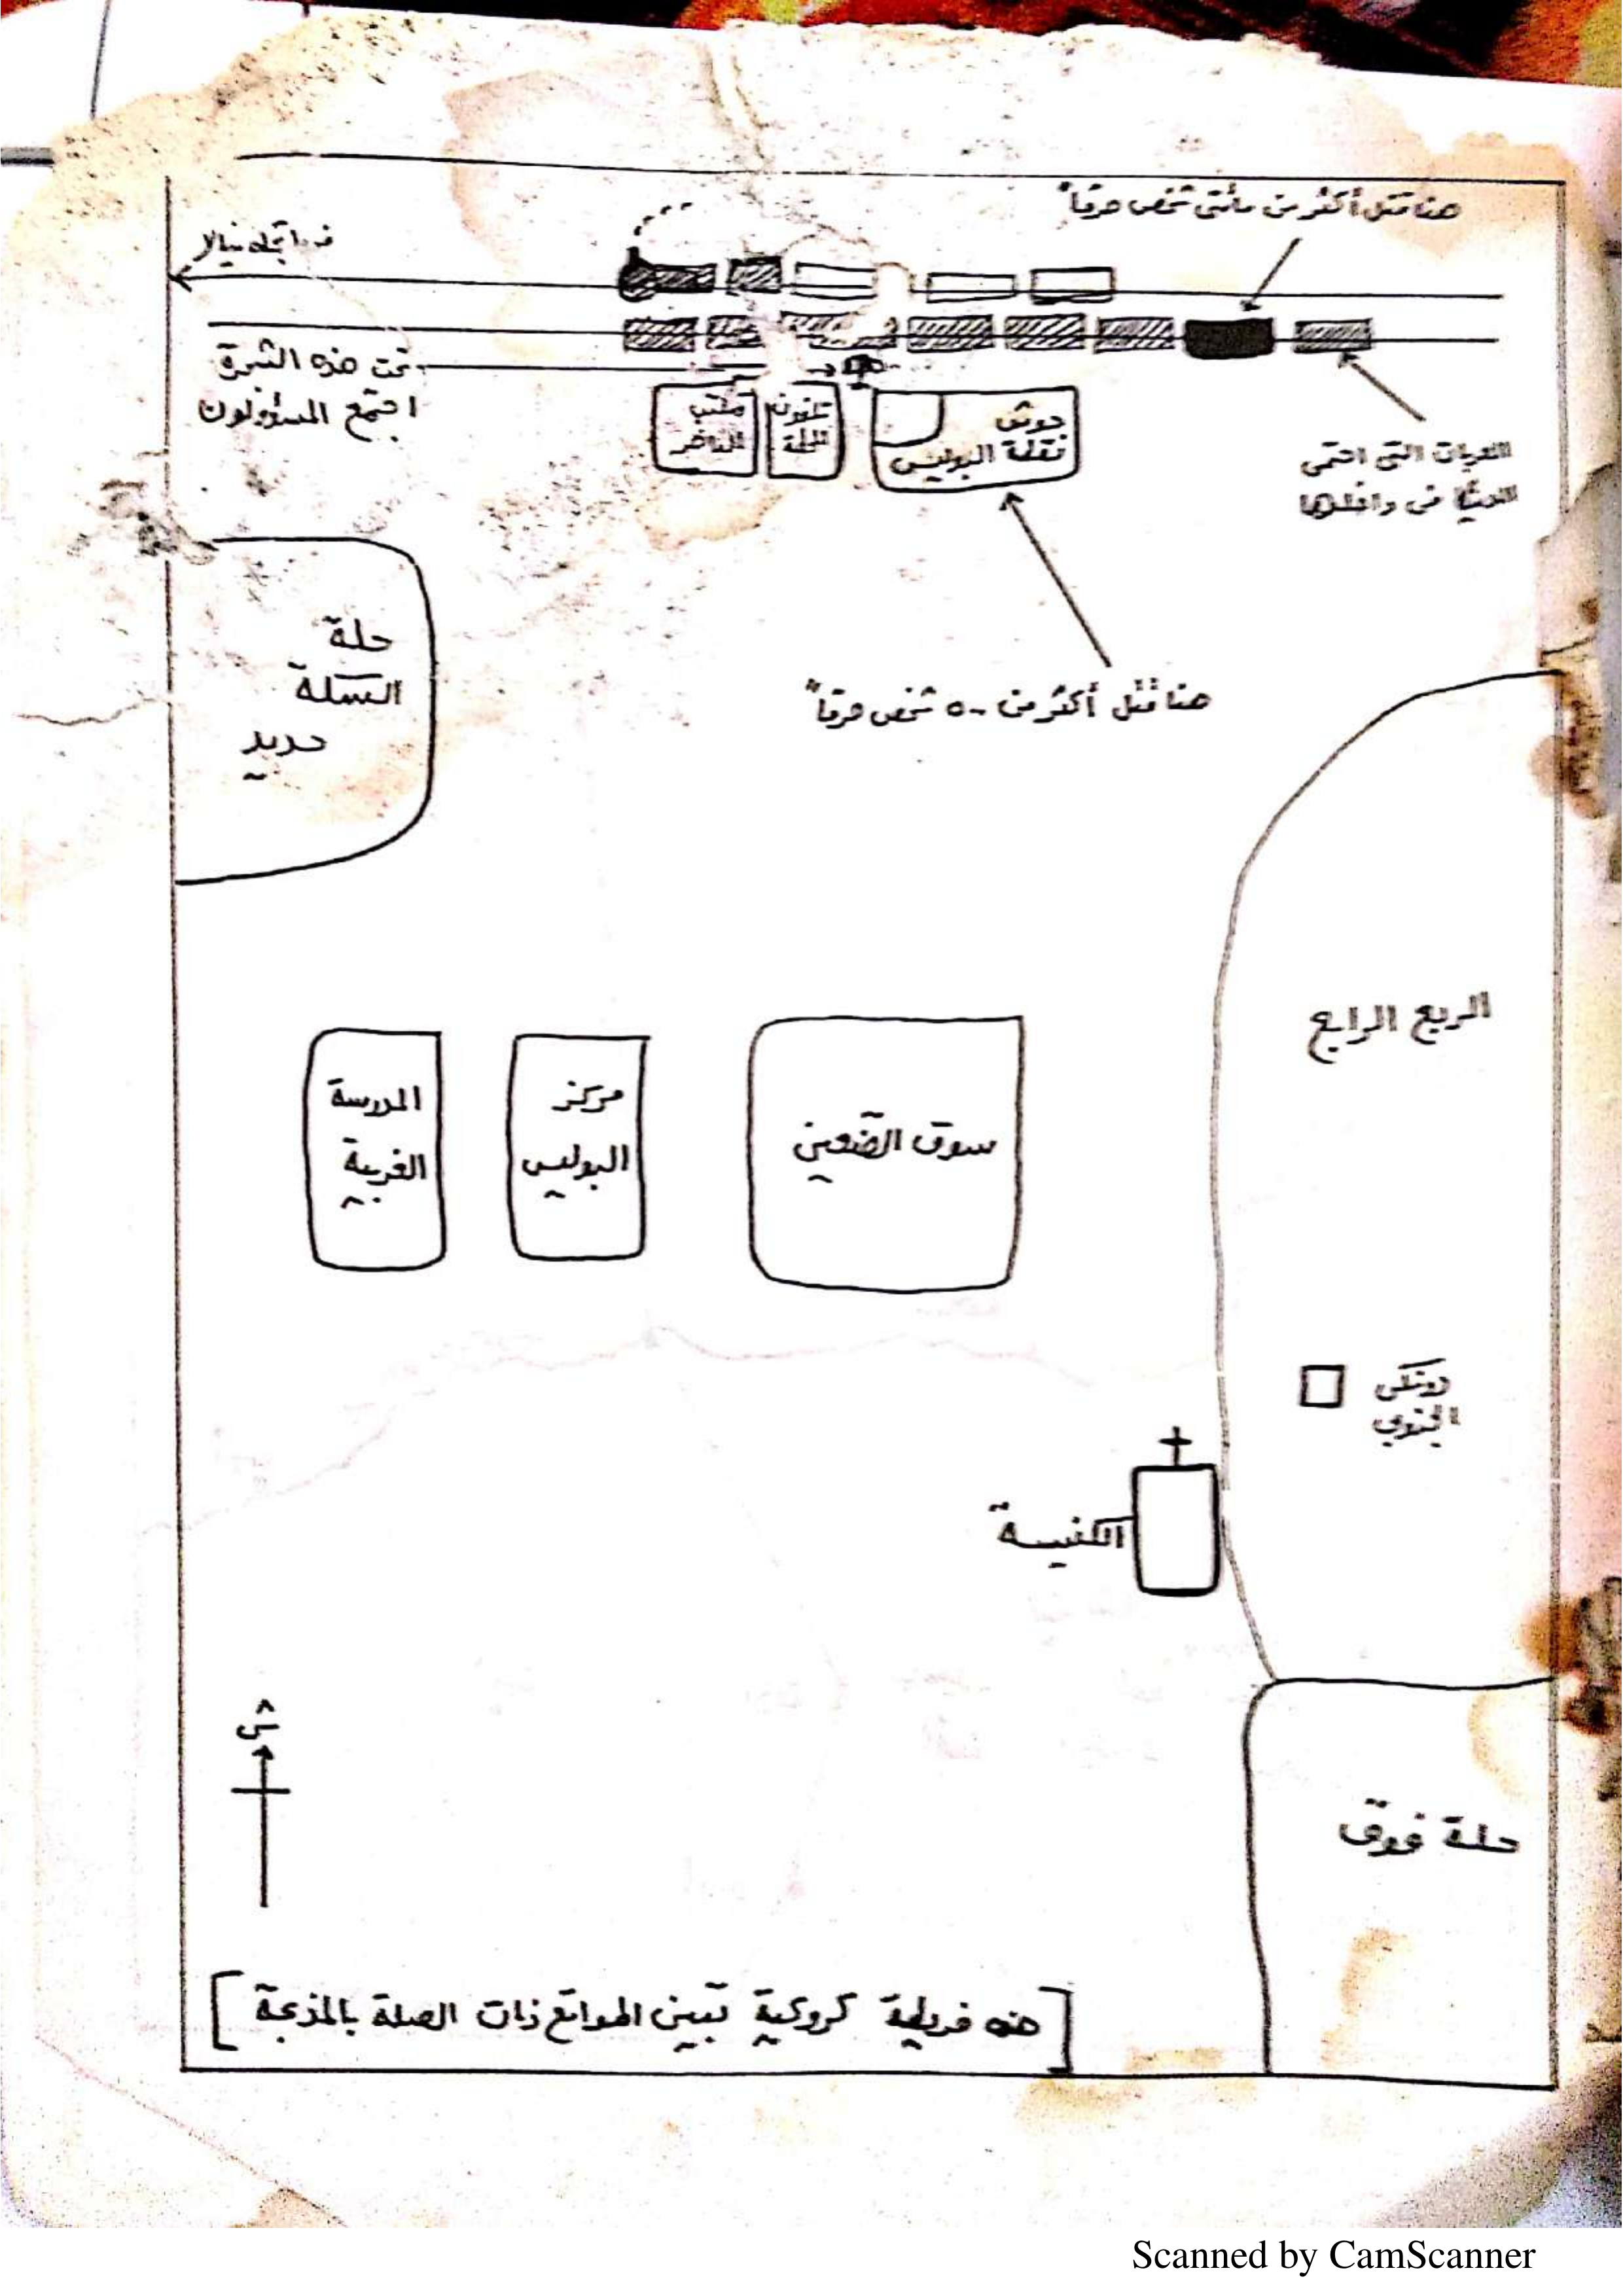 هنا قتل أكثر من مائتى شخص حرقاً
فى اتجاه نيالا
تحت هذه الشجرة
اجتمع المسؤولون
مكتب
الناظر
تلفون
الحلة
حوش
نقطة البوليس
العربات التى احتمى
الدينكا فى داخلها
هنا قُتل أكثر من ٥٠ شخص حرقاً
حلة
السكة
حديد
الربع الرابع
المدرسة
الغربية
مركز
البوليس
سوق الضعين
دونكى
الجنوبي
الكنيسة
ش
حلة فوق
[هذه خريطة كروكية تبين المواقع ذات الصلة بالمذبحة]
Scanned by CamScanner